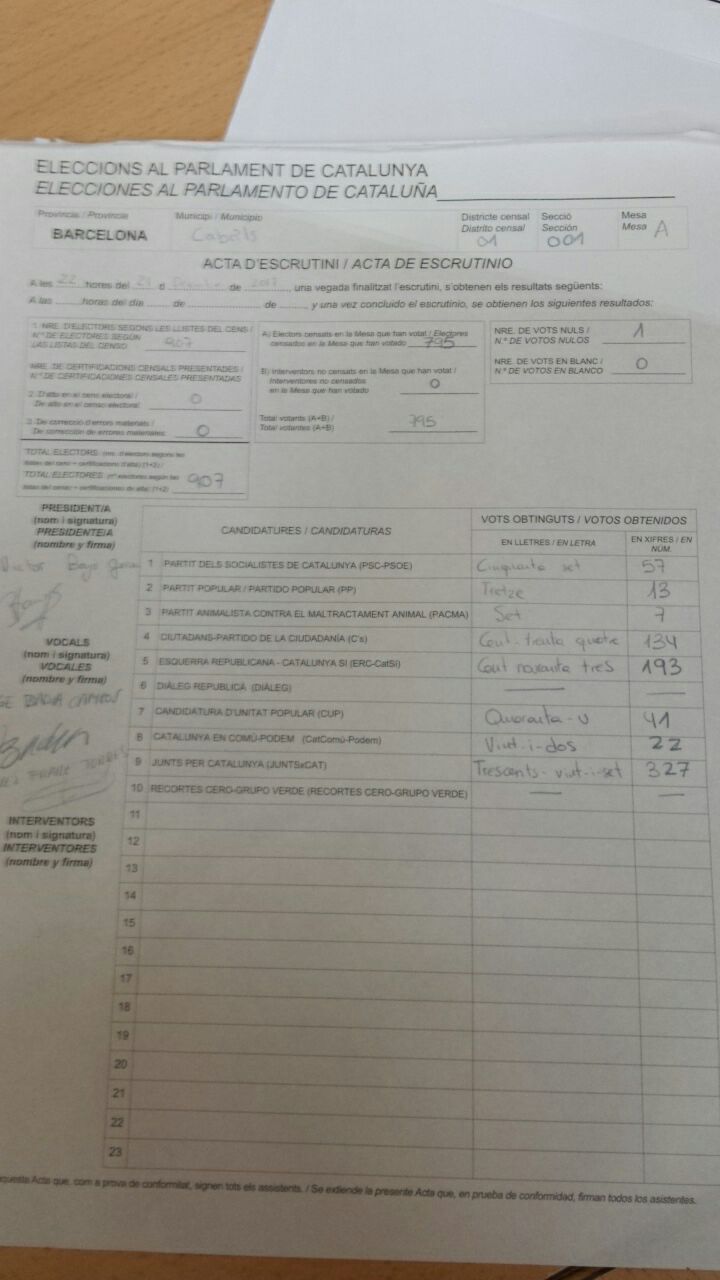 ELECCIONS AL PARLAMENT DE CATALUNYA
ELECCIONES AL PARLAMENTO DE CATALUÑA
Província / Provincia
BARCELONA
Municipi / Municipio
Cabrils
Districte censal
Distrito censal
01
Secció
Sección
001
Mesa
Mesa A
ACTA D'ESCRUTINI / ACTA DE ESCRUTINIO
A les 22 hores del 21 d de 2017, una vegada finalitzat l'escrutini, s'obtenen els resultats següents:
A las ____ horas del día ____ de ____ de ____, y una vez concluido el escrutinio, se obtienen los siguientes resultados:
1. NRE. D'ELECTORS SEGONS LES LLISTES DEL CENS /
N.º DE ELECTORES SEGÚN
LAS LISTAS DEL CENSO 907
NRE. DE CERTIFICACIONS CENSALS PRESENTADES /
N.º DE CERTIFICACIONES CENSALES PRESENTADAS
2. D'alta en el cens electoral /
De alta en el censo electoral: 0
3. De correcció d'errors materials /
De corrección de errores materiales: 0
TOTAL ELECTORS (nre. d'electors segons les
llistes del cens + certificacions d'alta) (1+2) /
TOTAL ELECTORES (nº electores según las
listas del censo + certificaciones de alta) (1+2) 907
A) Electors censats en la Mesa que han votat / Electores
censados en la Mesa que han votado 795
B) Interventors no censats en la Mesa que han votat /
Interventores no censados
en la Mesa que han votado 0
Total votants (A+B) /
Total votantes (A+B) 795
NRE. DE VOTS NULS /
N.º DE VOTOS NULOS 1
NRE. DE VOTS EN BLANC /
N.º DE VOTOS EN BLANCO 0
PRESIDENT/A
(nom i signatura)
PRESIDENTE/A
(nombre y firma)
VOCALS
(nom i signatura)
VOCALES
(nombre y firma)
INTERVENTORS
(nom i signatura)
INTERVENTORES
(nombre y firma)
CANDIDATURES / CANDIDATURAS
VOTS OBTINGUTS / VOTOS OBTENIDOS
EN LLETRES / EN LETRA
EN XIFRES / EN NÚM.
1 PARTIT DELS SOCIALISTES DE CATALUNYA (PSC-PSOE) Cinquanta set 57
2 PARTIT POPULAR / PARTIDO POPULAR (PP) Tretze 13
3 PARTIT ANIMALISTA CONTRA EL MALTRACTAMENT ANIMAL (PACMA) Set 7
4 CIUTADANS-PARTIDO DE LA CIUDADANÍA (C's) Cent-trenta quatre 134
5 ESQUERRA REPUBLICANA - CATALUNYA SI (ERC-CatSí) Cent noranta tres 193
6 DIÀLEG REPUBLICÀ (DIÀLEG) — —
7 CANDIDATURA D'UNITAT POPULAR (CUP) Quaranta-u 41
8 CATALUNYA EN COMÚ-PODEM (CatComú-Podem) Vint-i-dos 22
9 JUNTS PER CATALUNYA (JUNTSxCAT) Trescents-vint-i-set 327
10 RECORTES CERO-GRUPO VERDE (RECORTES CERO-GRUPO VERDE) — —
11
12
13
14
15
16
17
18
19
20
21
22
23
questa Acta que, com a prova de conformitat, signen tots els assistents. / Se expiende la presente Acta que, en prueba de conformidad, firman todos los asistentes.